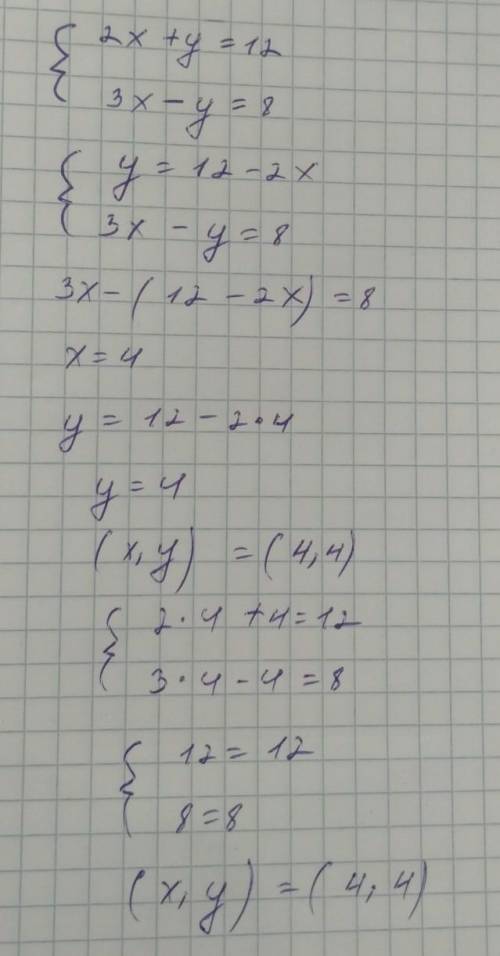 { 2x + y = 12
3x - y = 8
{ y = 12 - 2x
3x - y = 8
3x - ( 12 - 2x) = 8
x = 4
y = 12 - 2·4
y = 4
(x, y) = (4, 4)
{ 2·4 + 4 = 12
3·4 - 4 = 8
{ 12 = 12
8 = 8
(x, y) = (4, 4)